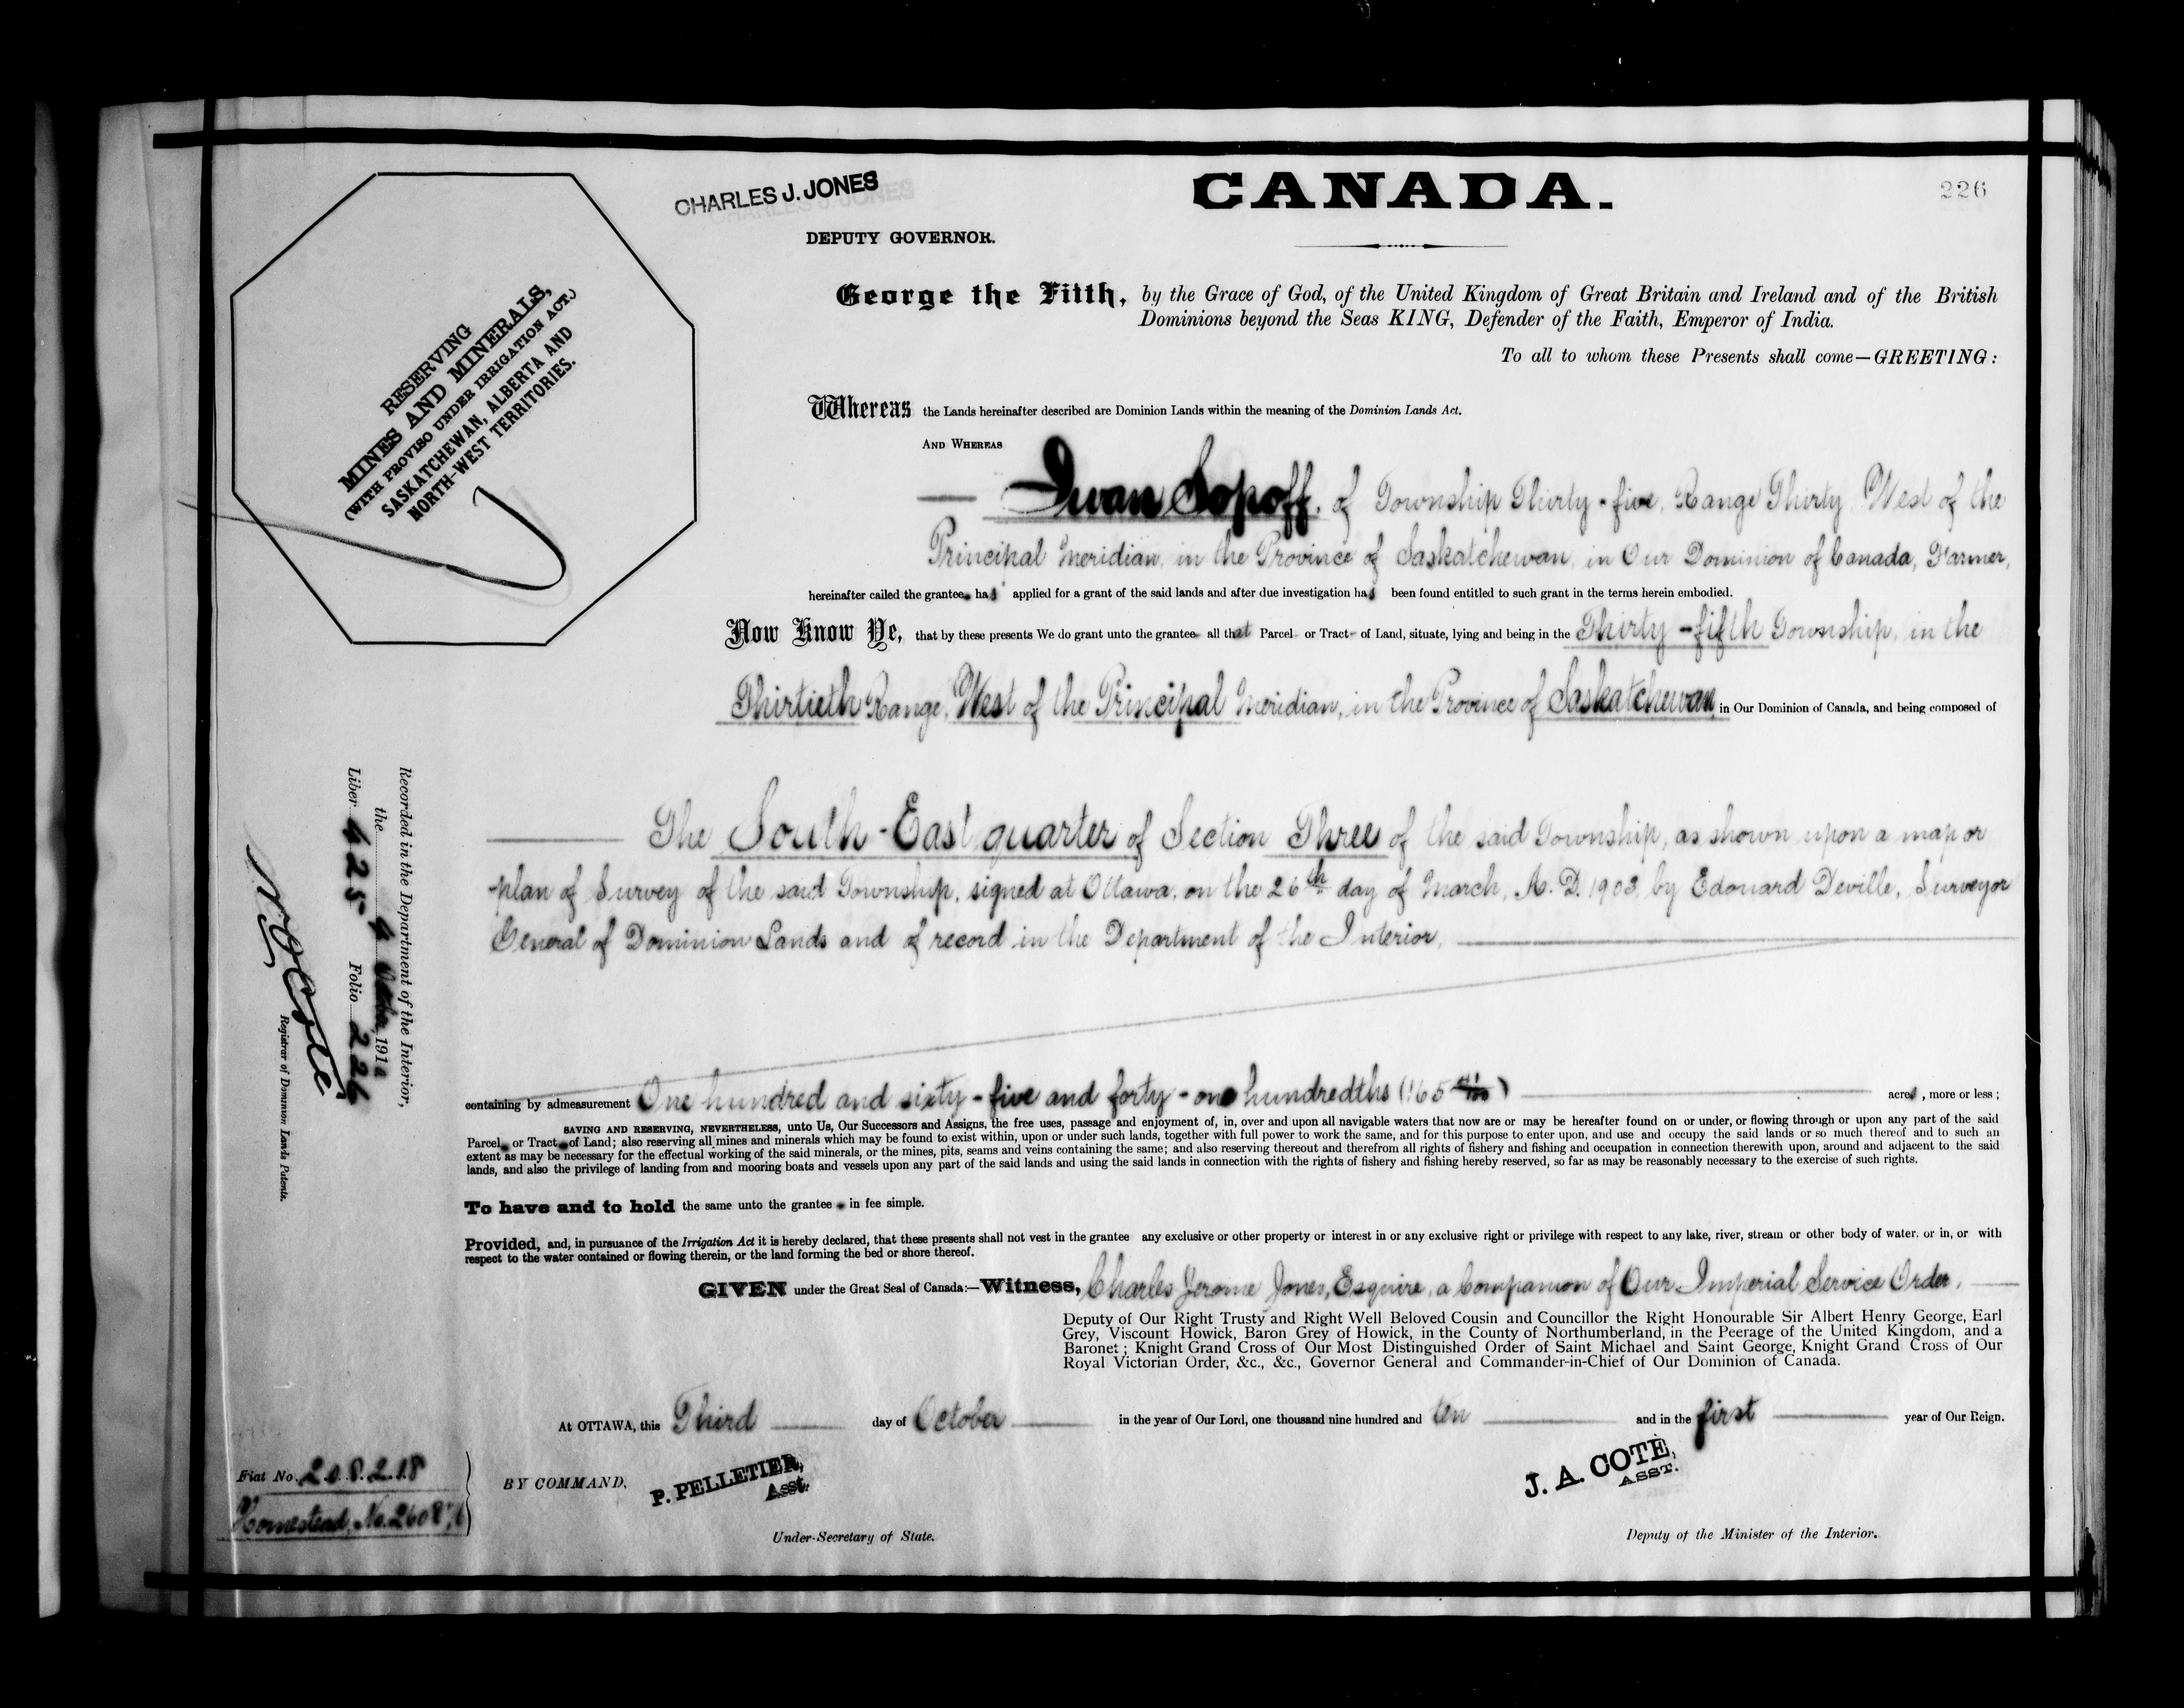 CHARLES J. JONES
DEPUTY GOVERNOR.
CANADA.
226
RESERVING
MINES AND MINERALS,
(WITH PROVISO UNDER IRRIGATION ACT.)
SASKATCHEWAN, ALBERTA AND
NORTH-WEST TERRITORIES.
George the Fifth, by the Grace of God, of the United Kingdom of Great Britain and Ireland and of the British
Dominions beyond the Seas KING, Defender of the Faith, Emperor of India.
To all to whom these Presents shall come—GREETING:
Whereas the Lands hereinafter described are Dominion Lands within the meaning of the Dominion Lands Act.
AND WHEREAS
Iwan Sopoff, of Township Thirty-five, Range Thirty West of the
Principal Meridian, in the Province of Saskatchewan, in Our Dominion of Canada, Farmer,
hereinafter called the grantee has applied for a grant of the said lands and after due investigation has been found entitled to such grant in the terms herein embodied.
Now Know Ye, that by these presents We do grant unto the grantee all that Parcel or Tract of Land, situate, lying and being in the Thirty-fifth Township, in the
Thirtieth Range, West of the Principal Meridian, in the Province of Saskatchewan in Our Dominion of Canada, and being composed of
The South-East quarter of Section Three of the said Township, as shown upon a map or
plan of Survey of the said Township, signed at Ottawa, on the 26th day of March, A.D. 1903, by Edouard Deville, Surveyor
General of Dominion Lands and of record in the Department of the Interior,
containing by admeasurement One hundred and sixty-five and forty-one hundredths (165 41/100) acres, more or less;
SAVING AND RESERVING, NEVERTHELESS, unto Us, Our Successors and Assigns, the free uses, passage and enjoyment of, in, over and upon all navigable waters that now are or may be hereafter found on or under, or flowing through or upon any part of the said
Parcel or Tract of Land; also reserving all mines and minerals which may be found to exist within, upon or under such lands, together with full power to work the same, and for this purpose to enter upon, and use and occupy the said lands or so much thereof and to such an
extent as may be necessary for the effectual working of the said minerals, or the mines, pits, seams and veins containing the same; and also reserving thereout and therefrom all rights of fishery and fishing and occupation in connection therewith upon, around and adjacent to the said
lands, and also the privilege of landing from and mooring boats and vessels upon any part of the said lands and using the said lands in connection with the rights of fishery and fishing hereby reserved, so far as may be reasonably necessary to the exercise of such rights.
To have and to hold the same unto the grantee in fee simple.
Provided, and, in pursuance of the Irrigation Act it is hereby declared, that these presents shall not vest in the grantee any exclusive or other property or interest in or any exclusive right or privilege with respect to any lake, river, stream or other body of water. or in, or with
respect to the water contained or flowing therein, or the land forming the bed or shore thereof.
GIVEN under the Great Seal of Canada:—Witness, Charles Jerome Jones, Esquire, a Companion of Our Imperial Service Order,
Deputy of Our Right Trusty and Right Well Beloved Cousin and Councillor the Right Honourable Sir Albert Henry George, Earl
Grey, Viscount Howick, Baron Grey of Howick, in the County of Northumberland, in the Peerage of the United Kingdom, and a
Baronet; Knight Grand Cross of Our Most Distinguished Order of Saint Michael and Saint George, Knight Grand Cross of Our
Royal Victorian Order, &c., &c., Governor General and Commander-in-Chief of Our Dominion of Canada.
At OTTAWA, this Third day of October in the year of Our Lord, one thousand nine hundred and ten and in the first year of Our Reign.
BY COMMAND,
P. PELLETIER,
Asst.
Under-Secretary of State.
J. A. COTE,
ASST.
Deputy of the Minister of the Interior.
Recorded in the Department of the Interior,
the 4 October, 191
Liber 425 Folio 226
Registrar of Dominion Lands Patents.
Fiat No. 208218
Homestead, No. 260876